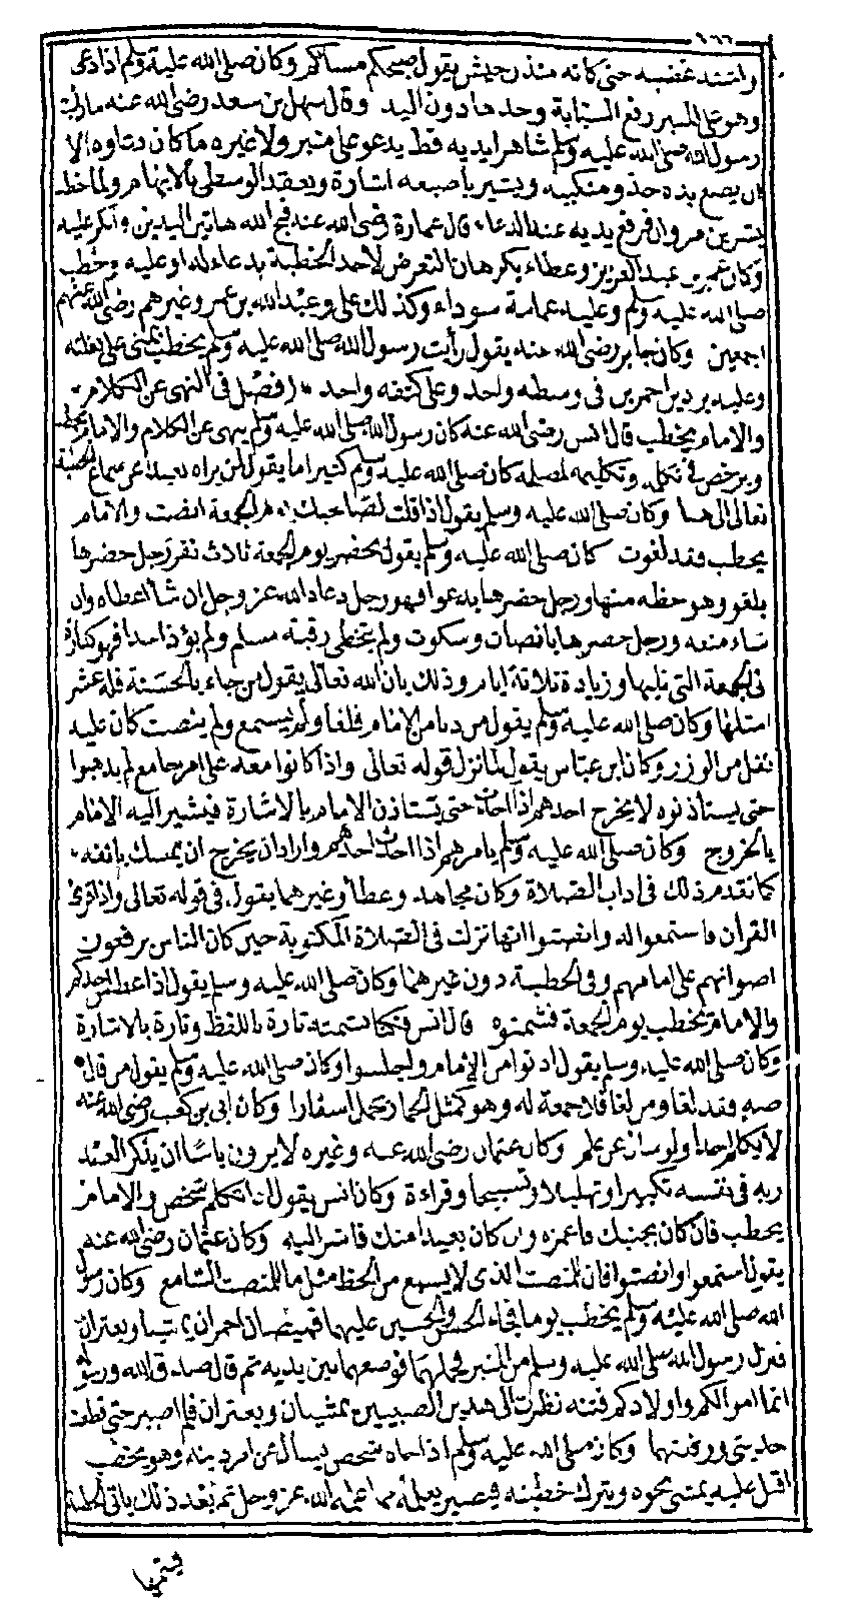 ١٦٦
واشتد غضبه حتى كانه منذر جيش يقول صبحكم مساكم وكان صلى الله عليه وسلم اذا دعى
وهو على المنبر رفع السبابة وحدها دون اليد وقال سهل بن سعد رضى الله عنه ما رايت
رسول الله صلى الله عليه وسلم شاهرا يديه قط يدعو على منبر ولا غيره ما كان دعاوه الا
ان يضع يده حذو منكبيه ويشير باصبعه اشارة ويعقد الوسطى بالابهام ولما خطب
بشر بن مروان فرفع يديه عند الدعاء قال عمارة رضى الله عنه قبح الله هاتين اليدين وانكر عليه
وكان عمر بن عبد العزيز وعطاء يكرهان التعرض لاحد الخطبة بدعاء له او عليه وخطب
صلى الله عليه وسلم وعليه عمامة سوداء وكذلك على وعبد الله بن عمر وغيرهم رضى الله عنهم
اجمعين وكان جابر رضى الله عنه يقول رأيت رسول الله صلى الله عليه وسلم يخطب بمنى على بغلته
وعليه بردين احمرين فى وسطه واحد وعلى كتفه واحد (فصل فى النهى عن الكلام
والامام يخطب قال انس رضى الله عنه كان رسول الله صلى الله عليه وسلم ينهى عن الكلام والامام يخطب
ويرخص فى تكلمه وتكليمه لمصلحة كان صلى الله عليه وسلم كثيرا ما يقول لمن يراه بعيدا عن سماع الخطبة
تعالى الى هنا وكان صلى الله عليه وسلم يقول اذا قلت لصاحبك يوم الجمعة انصت والامام
يخطب فقد لغوت كان صلى الله عليه وسلم يقول يحضر يوم الجمعة ثلاث نفر رجل حضرها
بلغو وهو حظه منها ورجل حضرها يدعو فهو رجل دعا الله عز وجل ان شا اعطاه وان
شاء منعه ورجل حضرها بانصات وسكوت ولم يتخطى رقبة مسلم ولم يؤذ احدا فهو كفارة
الى الجمعة التى تليها وزيادة ثلاثة ايام وذلك بان الله تعالى يقول من جاء بالحسنة فله عشر
امثالها وكان صلى الله عليه وسلم يقول من دنا من الامام فلغا ولم يستمع ولم ينصت كان عليه
كفل من الوزر وكان ابن عباس يقول لما نزل قوله تعالى واذا كانوا معه على امر جامع لم يذهبوا
حتى يستاذنوه لا يخرج احدهم اذا احدث حتى يستاذن الامام بالاشارة فيشير اليه الامام
بالخروج وكان صلى الله عليه وسلم يامرهم اذا احدث احدهم واراد ان يخرج ان يمسك بانفه
كما تقدم ذلك فى اداب الصلاة وكان مجاهد وعطا وغيرهما يقول فى قوله تعالى واذا قرئ
القران فاستمعوا له وانصتوا انها نزلت فى الصلاة المكتوبة حين كان الناس يرفعون
اصواتهم على امامهم وفى الخطبة دون غيرهما وكان صلى الله عليه وسلم يقول اذا عطس احدكم
والامام يخطب يوم الجمعة فشمتوه قال انس فكنا نشمته تارة باللفظ وتارة بالاشارة
وكان صلى الله عليه وسلم يقول ادنوا من الامام واجلسوا وكان صلى الله عليه وسلم يقول من قال
صه فقد لغا ومن لغا فلا جمعة له وهو كمثل الحمار يحمل اسفارا وكان ابى بن كعب رضى الله عنه
لا يكلم احدا ولو سال عن علم وكان عثمان رضى الله عنه وغيره لا يرون باسا ان يذكر العبد
ربه فى نفسه تكبيرا وتهليلا وتسبيحا وقراءة وكان انس يقول اذا تكلم شخص والامام
يخطب فان كان بجنبك فاغمزه وان كان بعيدا منك فاشر اليه وكان عثمان رضى الله عنه
يقول استمعوا وانصتوا فان للمنصت الذى لا يسمع من الحظ مثل ما للمنصت السامع وكان رسول
الله صلى الله عليه وسلم يخطب يوما فجاء الحسن والحسين عليهما قميصان احمران يمشيان ويعثران
فنزل رسول الله صلى الله عليه وسلم من المنبر فحملهما فوضعهما بين يديه ثم قال صدق الله ورسوله
انما اموالكم واولادكم فتنة نظرت الى هذين الصبيين يمشيان ويعثران فلم اصبر حتى قطعت
حديثى ورفعتهما وكان صلى الله عليه وسلم اذا جاءه شخص يسال عن امر دينه وهو يخطب
اقبل عليه يمشى نحوه ويترك خطبته فيصير يعلمه مما علمه الله عز وجل ثم بعد ذلك ياتى الخطبة
فيتمها